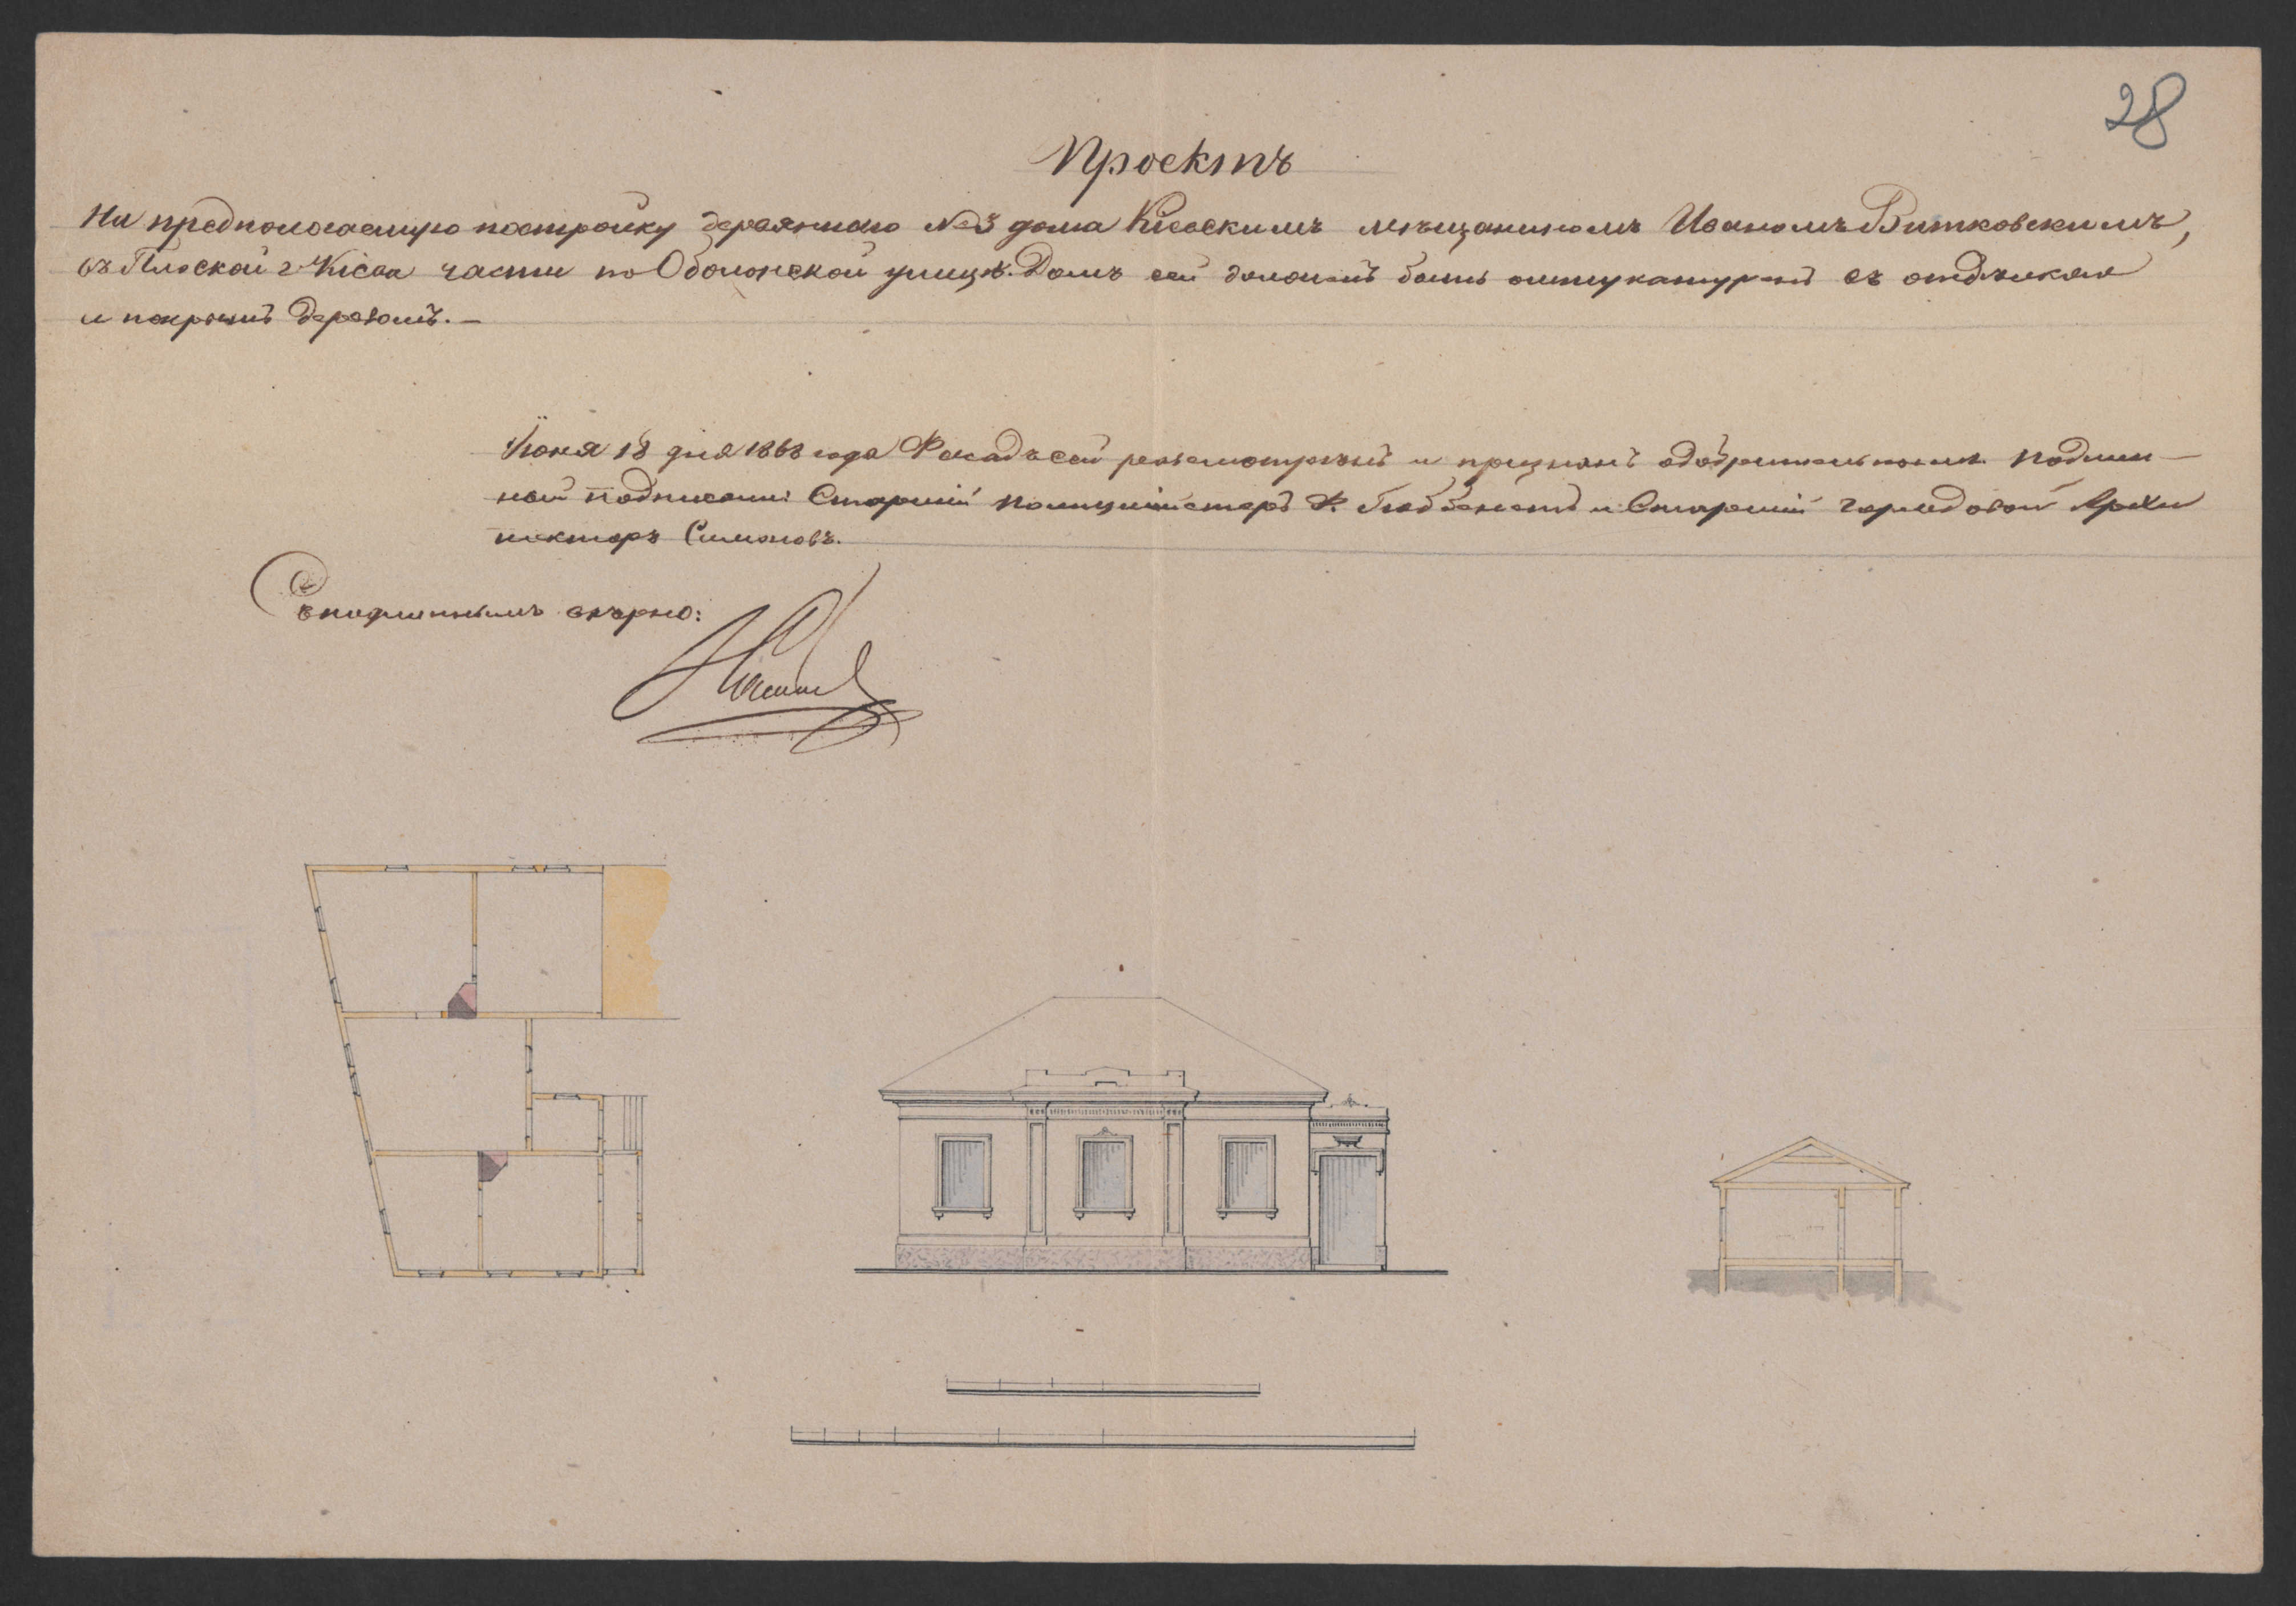 28
Проектъ
На предполагаемую постройку деревяннаго № 3 дома Кіевскимъ мѣщаниномъ Иваномъ Витковскимъ,
въ Плоской г. Кіева части по Оболонской улицѣ. Домъ сей долженъ быть оштукатуренъ съ отдѣлкою
и покрытъ деревомъ. —
Іюня 18 дня 1868 года Фасадъ сей разсмотренъ и признанъ одобрительнымъ. Подлин-
ной подписали: Старшій Полицiймейстеръ и Старшій городовой Архи
текторъ Симоновъ.
Съ подлиннымъ вѣрно: